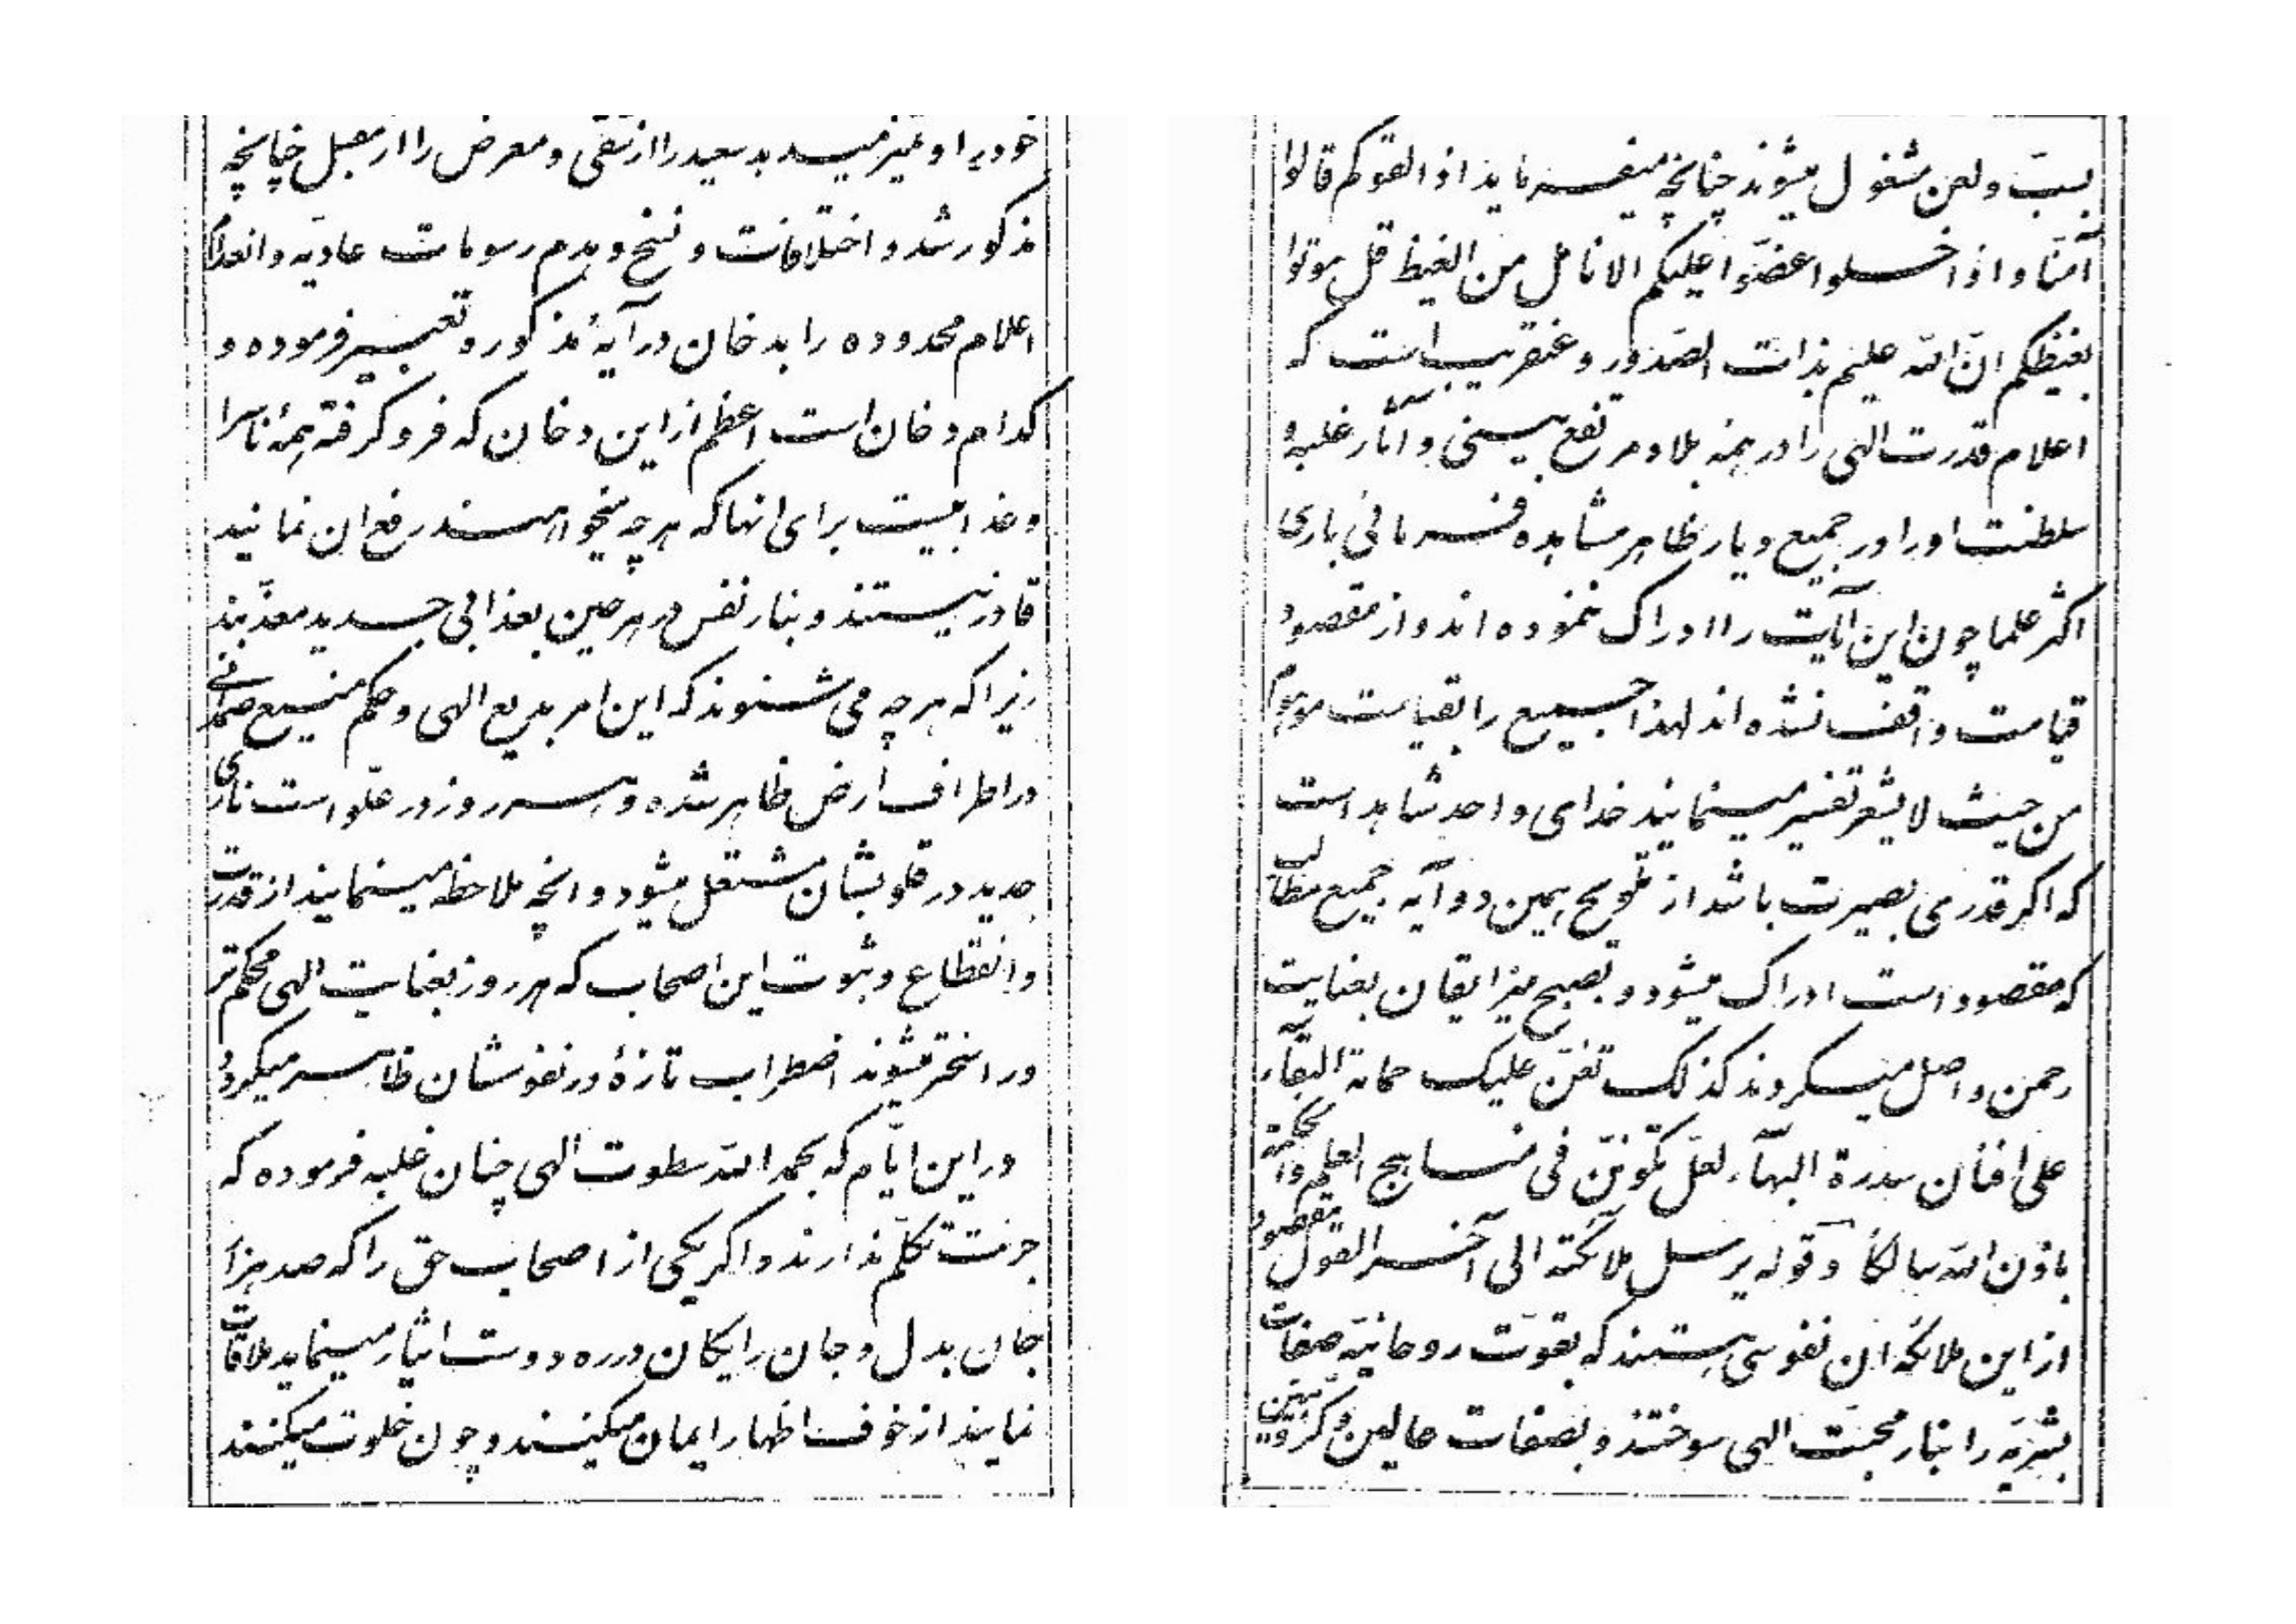 خود را و تمیز میدهد سعید را از شقی و معرض را از مقبل چنانچه
مذکور شد و اختلافات و نسخ و هدم رسومات عادیّه و انعدام
اعلام محدوده را بدخان در آیهٔ مذکوره تعبیر فرموده و
کدام دخان است اعظم از این دخان که فرو گرفته همهٔ ناس را
و عذابیست برای انها که هرچه میخواهند رفع ان نمایند
قادر نیستند و بنار نفس در هر حین بعذابی جدید معذّبند
زیرا که هر چه می شنوند که این امر بدیع الهی و حکم منیع صمدانی
در اطراف ارض ظاهر شده و هر روز در علوّ است ناری
جدید در قلوبشان مشتعل میشود و انچه ملاحظه مینمایند از قدرت
و انقطاع و ثبوت این اصحاب که هر روز بعنایت الهی محکم تر
و راسختر میشوند اضطراب تازهٔ در نفوسشان ظاهر میگردد
در این ایّام که بحمد الله سطوت الهی چنان غلبه فرموده که
جرئت تکلّم ندارند و اگر یکی از اصحاب حق را که صد هزار
جان بدل و جان رایگان در ره دوست ایثار مینماید ملاقات
نمایند از خوف اظهار ایمان میکنند و چون خلوت میکنند
بسبّ و لعن مشغول میشوند چنانچه میفرماید اذا لقوکم قالوا
آمنّا و اذا خلوا عضّوا علیکم الانامل من الغیظ قل موتوا
بغیظکم انّ الله علیم بذات الصّدور و عنقریب است که
اعلام قدرت الهی را در همهٔ بلاد مرتفع بینی و آثار غلبه و
سلطنت او را در جمیع دیار ظاهر مشاهده فرمائی باری
اکثر علما چون این آیات را ادراک ننموده اند و از مقصود
قیامت واقف نشده اند لهذا جمیع را بقیامت موهوم
من حیث لا یشعر تفسیر مینمایند خدای واحد شاهد است
که اگر قدری بصیرت باشد از تلویح همین دو آیه جمیع مطالب
که مقصود است ادراک میشود و بصبح منیر ایقان بعنایت
رحمن واصل میگردند کذلک تغنّ علیک حمامة البقآء
علی افنان سدرة البهآء لعلّ تکوننّ فی مناهج العلم و الحکمة
باذن الله سالکاً و قوله یرسل ملائکته الی آخر القول مقصود
از این ملائکه ان نفوسی هستند که بقوّت روحانیّه صفات
بشریّه را بنار محبّت الهی سوختند و بصفات عالین و کرّوبیّین